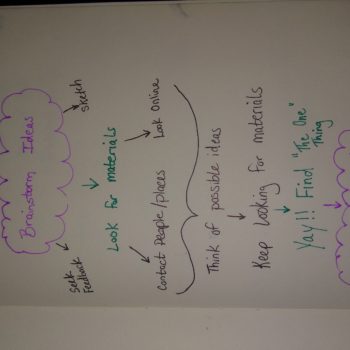 Brainstorm Ideas
Seek
Feedback
Sketch
Look for materials
Contact People/places
Look Online
Think of possible ideas
Keep Looking for materials
Yay!! Find "The One"
Thing